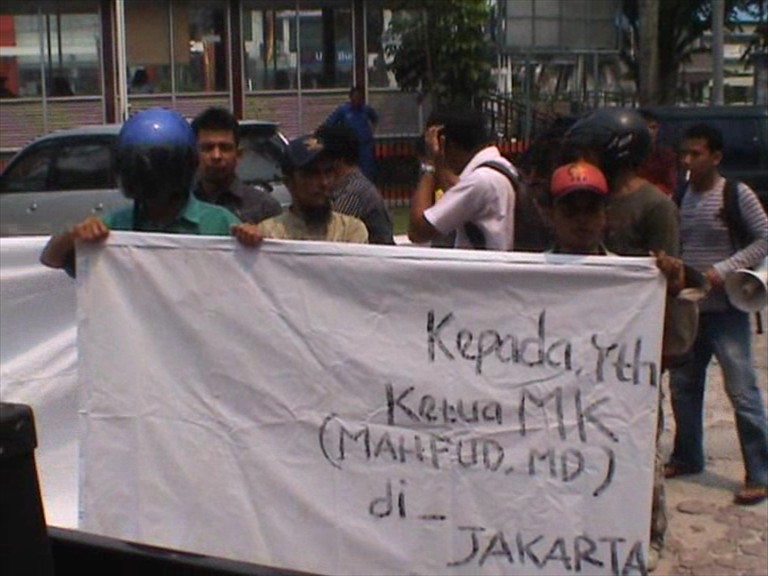 Kepada, Yth
Ketua MK
(MAHFUD. MD)
di_
JAKARTA